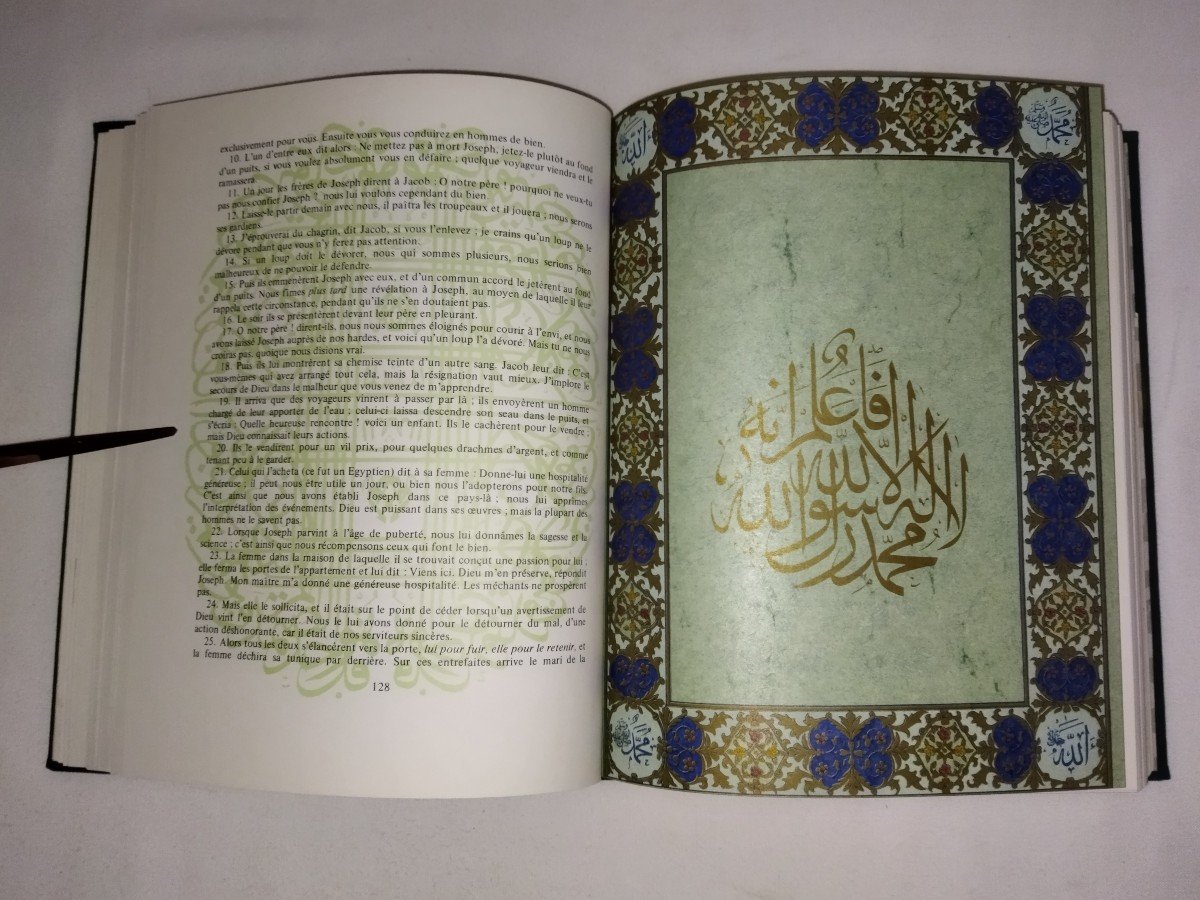 exclusivement pour vous. Ensuite vous vous conduirez en hommes de bien.
10. L'un d'entre eux dit alors : Ne mettez pas à mort Joseph, jetez-le plutôt au fond
d'un puits, si vous voulez absolument vous en défaire ; quelque voyageur viendra et le
ramassera.
11. Un jour les frères de Joseph dirent à Jacob : O notre père ! pourquoi ne veux-tu
pas nous confier Joseph ? nous lui voulons cependant du bien.
12. Laisse-le partir demain avec nous, il paîtra les troupeaux et il jouera ; nous serons
ses gardiens.
13. J'éprouverai du chagrin, dit Jacob, si vous l'enlevez ; je crains qu'un loup ne le
dévore pendant que vous n'y ferez pas attention.
14. Si un loup doit le dévorer, nous qui sommes plusieurs, nous serions bien
malheureux de ne pouvoir le défendre.
15. Puis ils emmenèrent Joseph avec eux, et d'un commun accord le jetèrent au fond
d'un puits. Nous fîmes plus tard une révélation à Joseph, au moyen de laquelle il leur
rappela cette circonstance, pendant qu'ils ne s'en doutaient pas.
16. Le soir ils se présentèrent devant leur père en pleurant.
17. O notre père ! dirent-ils, nous nous sommes éloignés pour courir à l'envi, et nous
avons laissé Joseph auprès de nos hardes, et voici qu'un loup l'a dévoré. Mais tu ne nous
croiras pas, quoique nous disions vrai.
18. Puis ils lui montrèrent sa chemise teinte d'un autre sang. Jacob leur dit : C'est
vous-mêmes qui avez arrangé tout cela, mais la résignation vaut mieux. J'implore le
secours de Dieu dans le malheur que vous venez de m'apprendre.
19. Il arriva que des voyageurs vinrent à passer par là ; ils envoyèrent un homme
chargé de leur apporter de l'eau ; celui-ci laissa descendre son seau dans le puits, et
s'écria : Quelle heureuse rencontre ! voici un enfant. Ils le cachèrent pour le vendre ;
mais Dieu connaissait leurs actions.
20. Ils le vendirent pour un vil prix, pour quelques drachmes d'argent, et comme
tenant peu à le garder.
21. Celui qui l'acheta (ce fut un Egyptien) dit à sa femme : Donne-lui une hospitalité
généreuse ; il peut nous être utile un jour, ou bien nous l'adopterons pour notre fils.
C'est ainsi que nous avons établi Joseph dans ce pays-là ; nous lui apprîmes
l'interprétation des événements. Dieu est puissant dans ses œuvres ; mais la plupart des
hommes ne le savent pas.
22. Lorsque Joseph parvint à l'âge de puberté, nous lui donnâmes la sagesse et la
science ; c'est ainsi que nous récompensons ceux qui font le bien.
23. La femme dans la maison de laquelle il se trouvait conçut une passion pour lui ;
elle ferma les portes de l'appartement et lui dit : Viens ici. Dieu m'en préserve, répondit
Joseph. Mon maître m'a donné une généreuse hospitalité. Les méchants ne prospèrent
pas.
24. Mais elle le sollicita, et il était sur le point de céder lorsqu'un avertissement de
Dieu vint l'en détourner. Nous le lui avons donné pour le détourner du mal, d'une
action déshonorante, car il était de nos serviteurs sincères.
25. Alors tous les deux s'élancèrent vers la porte, lui pour fuir, elle pour le retenir, et
la femme déchira sa tunique par derrière. Sur ces entrefaites arrive le mari de la
128
الله
محمد
فاعلم انه
لا اله الا الله
محمد رسول الله
محمد
الله